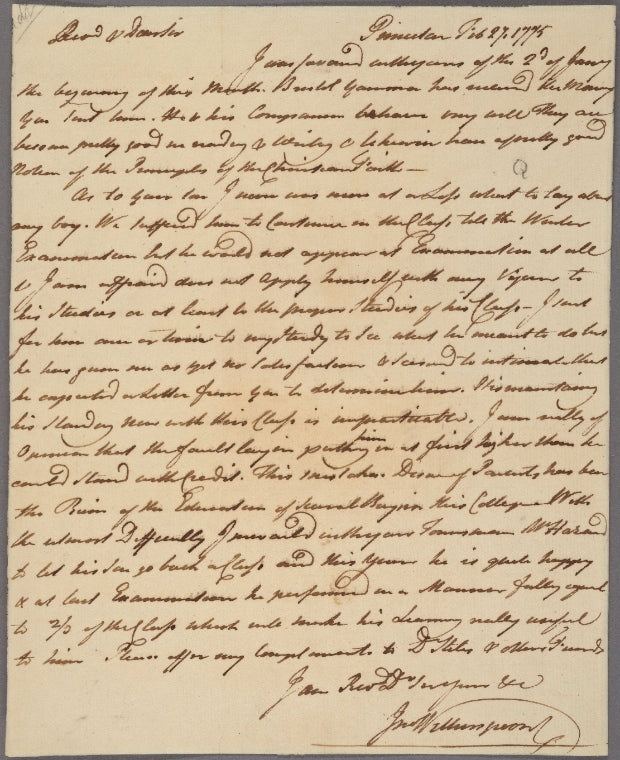 Revd & Dear Sir
Princeton Feb 27. 1775
I was favoured with yours of the 2d of Jany
the beginning of this Month. Bristol Yamma has received the Money
you sent him. He & his Companion behave very well They are
become pretty good in reading & Writing & likewise have a pretty good
Notion of the Principles of the Christian Faith —
Q
As to your Son I never was more at a Loss what to say about
any boy. We suffered him to Continue in the Class till the Winter
Examination but he would not appear at Examination at all
& I am affraid does not apply himself with any Vigour to
his Studies or at least to the proper Studies of his Class — I sent
for him once or twice to my Study to See what he meant to do but
he has given me as yet no Satisfaction & seemed to intimate that
he expected a Letter from you to determine him. His maintaining
his Standing now with this Class is impracticable. I am really of
Opinion that the fault lay in putting him in at first higher than he
could Stand with Credit. This mistaken Desire of Parents has been
the Ruin of the Education of several Boys in this College With
the utmost Difficulty I prevailed with your Townsman Mr Hazard
to let his Son go back a Class and this Year he is quite happy
& at last Examination he performed in a Manner fully equal
to 2/3 of the Class which will make his Learning really useful
to him Please offer my Compliments to Dr Stiles & other Friends
I am Revd Dr Sir yours &c
Jno Witherspoon